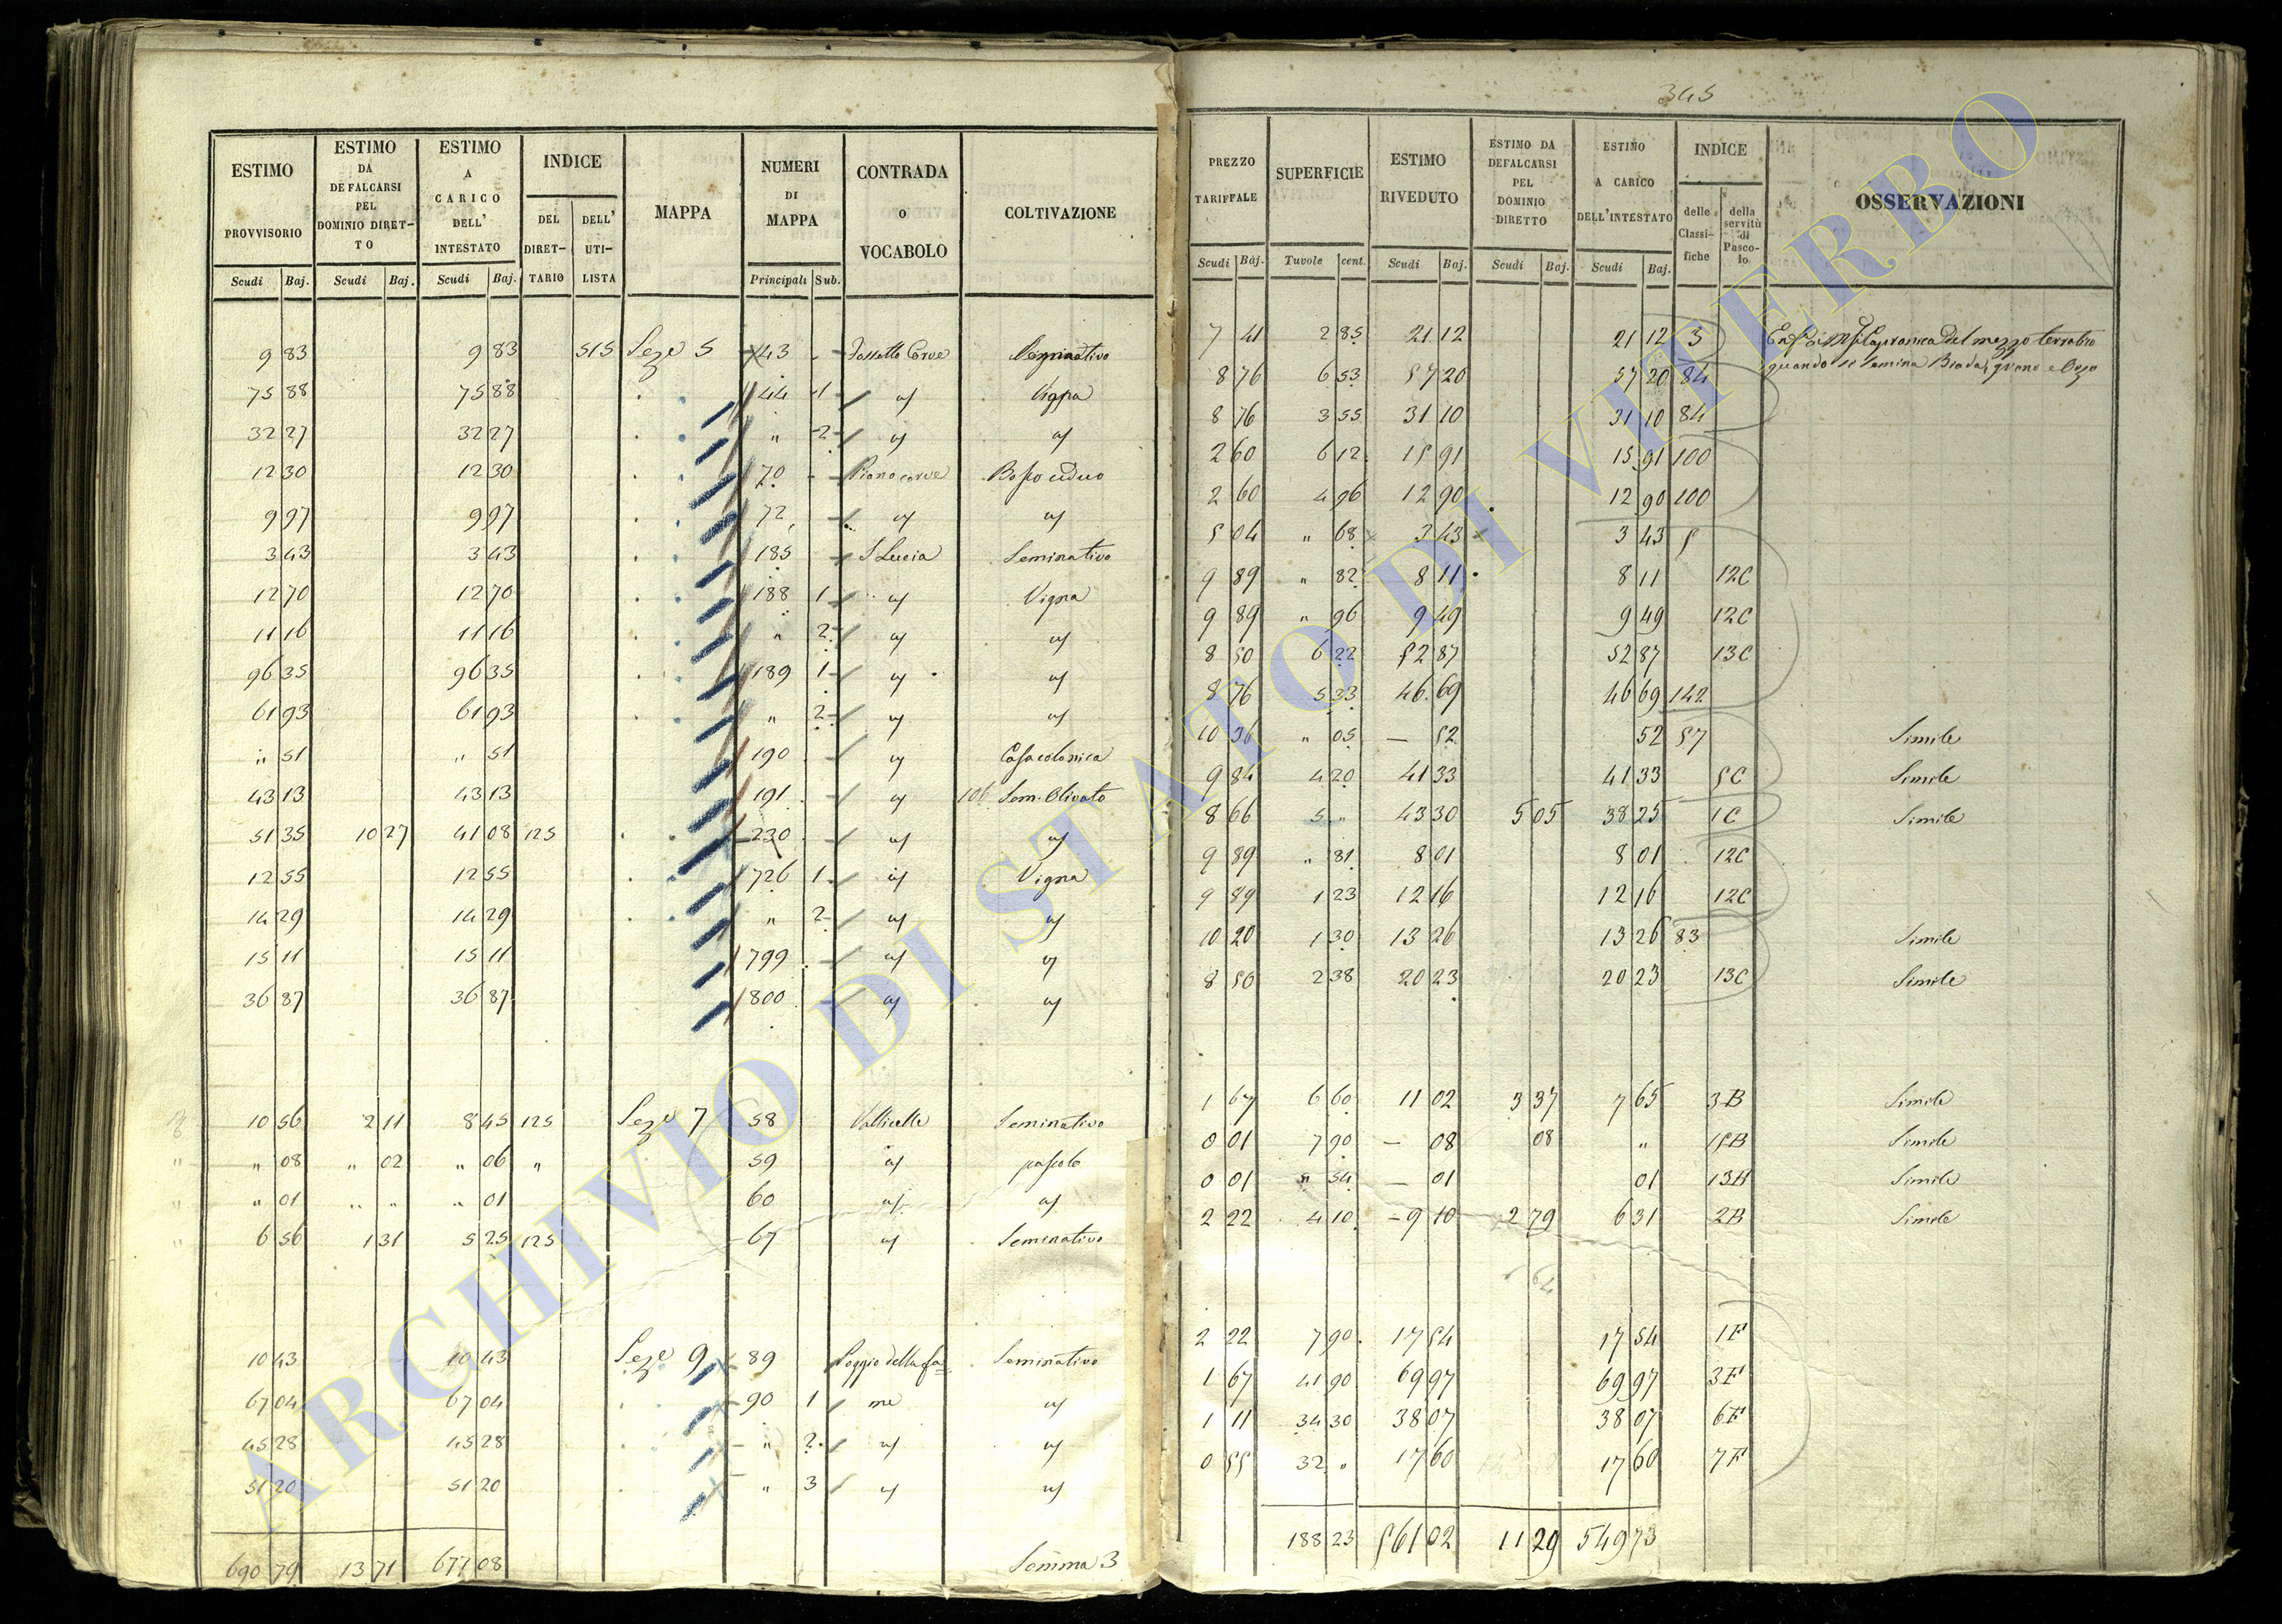 345
ESTIMO PROVVISORIO Scudi Baj. | ESTIMO DA DEFALCARSI PEL DOMINIO DIRETTO Scudi Baj. | ESTIMO A CARICO DELL' INTESTATO Scudi Baj. | INDICE DEL DIRETTARIO DELL' UTILISTA | MAPPA | NUMERI DI MAPPA Principali Sub. | CONTRADA O VOCABOLO | COLTIVAZIONE
9 83 9 83 515 Seze 5 43 Corve Seminativo
75 88 75 88 44 1 Vigna
32 27 32 27 " 2
12 30 12 30 70 Piano corve Bosco ceduo
9 97 9 97 72
3 43 3 43 185 S Lucia Seminativo
12 70 12 70 188 1 Vigna
11 16 11 16 " 2
96 35 96 35 189 1
61 93 61 93 " 2
" 51 " 51 190 Casa colonica
43 13 43 13 191 106 Sem. Olivato
51 35 10 27 41 08 125 230
12 55 12 55 726 1 Vigna
14 29 14 29 " 2
15 11 15 11 799
36 87 36 87 800
10 56 2 11 8 45 125 Seze 7 58 Vallicelle Seminativo
" 08 " 02 " 06 " 59 pascolo
" 01 " " " 01 60
6 56 1 31 5 25 125 67 Seminativo
10 43 10 43 Seze 9 89 Poggio della fa= Seminativo
67 04 67 04 90 1 me
45 28 45 28 " 2
51 20 51 20 " 3
690 79 13 71 677 08 Somma 3
PREZZO TARIFFALE Scudi Baj. | SUPERFICIE Tavole cent. | ESTIMO RIVEDUTO Scudi Baj. | ESTIMO DA DEFALCARSI PEL DOMINIO DIRETTO Scudi Baj. | ESTIMO A CARICO DELL'INTESTATO Scudi Baj. | INDICE delle Classifiche della servitù di Pascolo | OSSERVAZIONI
7 41 2 85 21 12 21 12 3 Capranica del mezzo terratico
8 76 6 53 57 20 57 20 84 quando si semina Biada, grano e Orzo
8 76 3 55 31 10 31 10 84
2 60 6 12 15 91 15 91 100
2 60 4 96 12 90 12 90 100
5 04 " 68 3 43 3 43 5
9 89 " 82 8 11 8 11 12C
9 89 " 96 9 49 9 49 12C
8 50 6 22 52 87 52 87 13C
8 76 5 33 46 69 46 69 142
10 36 " 05 — 52 52 57 Simile
9 84 4 20 41 33 41 33 5C Simile
8 66 5 " 43 30 5 05 38 25 1C Simile
9 89 " 81 8 01 8 01 12C
9 89 1 23 12 16 12 16 12C
10 20 1 30 13 26 13 26 83 Simile
8 50 2 38 20 23 20 23 13C Simile
1 67 6 60 11 02 3 37 7 65 3B Simile
0 01 7 90 — 08 08 " 15B Simile
0 01 " 54 — 01 01 13B Simile
2 22 4 10 — 9 10 2 79 6 31 2B Simile
2 22 7 90 17 54 17 54 1F
1 67 41 90 69 97 69 97 3F
1 11 34 30 38 07 38 07 6F
0 55 32 " 17 60 17 60 7F
188 23 561 02 11 29 549 73
ARCHIVIO DI STATO DI VITERBO